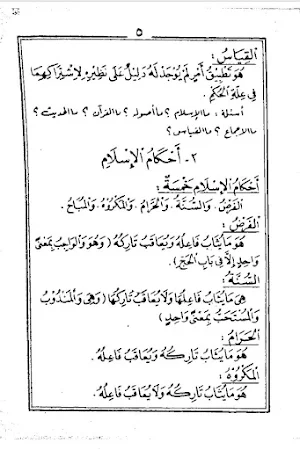 ٥
القِيَاسُ :
هُوَ تَطْبِيْقُ أَمْرٍ لَمْ يُوْجَدْ لَهُ دَلِيْلٌ عَلَى نَظِيْرِهِ لِاشْتِرَاكِهِمَا
فِي عِلَّةِ الْحُكْمِ.
أسئلة : ما الإسلام ؟ ما أصوله ؟ ما القرآن ؟ ما الحديث ؟
ما الاجماع ؟ ما القياس ؟
٢ - أَحْكَامُ الْإِسْلَامِ
أَحْكَامُ الْإِسْلَامِ خَمْسَةٌ :
الفَرْضُ . وَالسُّنَّةُ . وَالْحَرَامُ . وَالْمَكْرُوْهُ . وَالْمُبَاحُ .
الفَرْضُ :
هُوَ مَا يُثَابُ فَاعِلُهُ وَيُعَاقَبُ تَارِكُهُ ( وَهُوَ وَالْوَاجِبُ بِمَعْنًى
وَاحِدٍ إِلَّا فِي بَابِ الْحَجِّ ) .
السُّنَّةُ :
هِيَ مَا يُثَابُ فَاعِلُهَا وَلَا يُعَاقَبُ تَارِكُهَا ( وَهِيَ وَالْمَنْدُوْبُ
وَالْمُسْتَحَبُّ بِمَعْنًى وَاحِدٍ )
الْحَرَامُ :
هُوَ مَا يُثَابُ تَارِكُهُ وَيُعَاقَبُ فَاعِلُهُ .
الْمَكْرُوْهُ :
هُوَ مَا يُثَابُ تَارِكُهُ وَلَا يُعَاقَبُ فَاعِلُهُ .